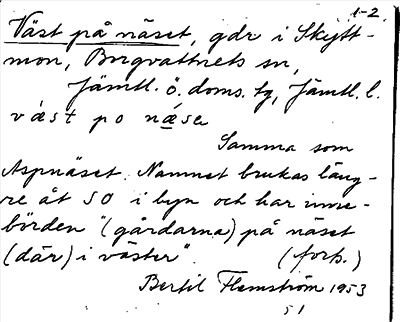 1-2.
Väst på näset, gdr i Skytt-
mon, Borgvattnets sn,
Jämtl. ö. doms. tg, Jämtl. l.
væ̀st po næ̀se
Samma som
Aspnäset. Namnet brukas läng-
re åt SO i byn och har inne-
börden "(gårdarna) på näset
(där) i väster". (forts.)
Bertil Flemström 1953
51